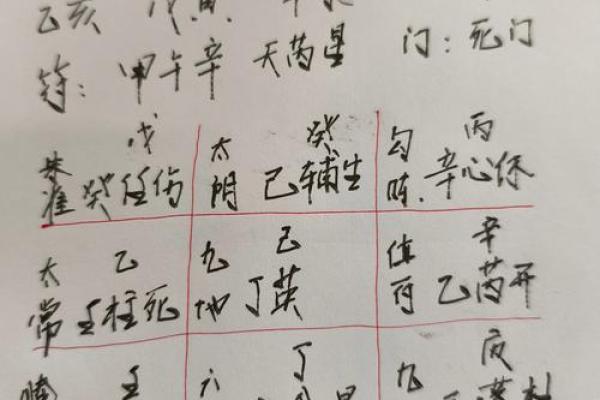 乙亥 戊寅
符：甲午辛 天芮星 门：死门
戊 癸 丙
朱雀 癸任伤 太阴 己辅生 勾陈 辛心休
乙 己 辛
太常 壬柱死 九地 丁英 值符 乙芮开
壬 六 丁 九